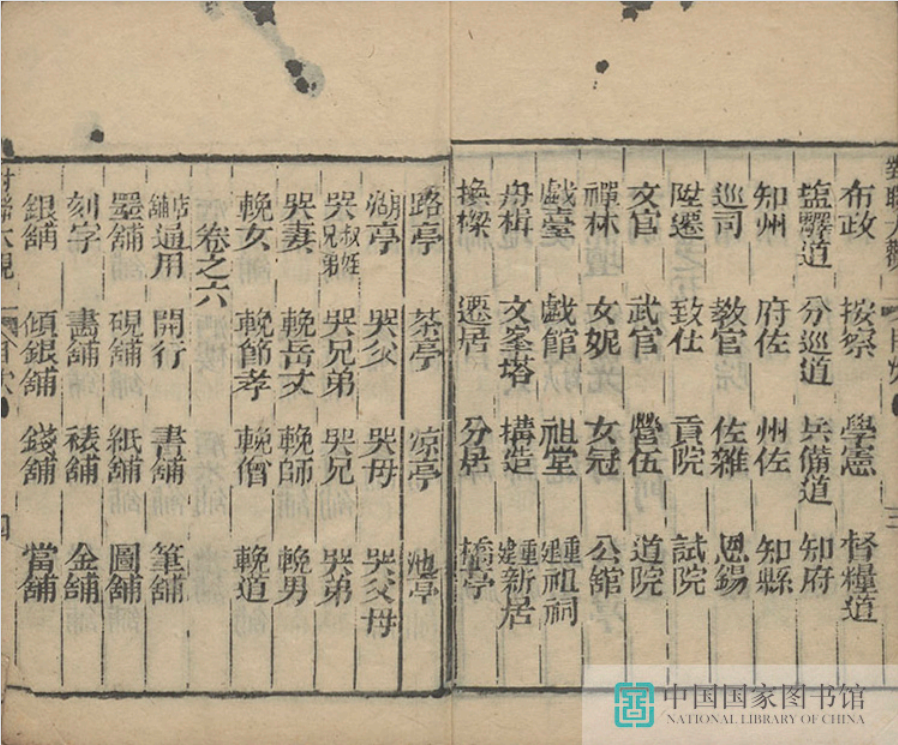 布政 按察 學憲 督糧道
鹽驛道 分巡道 兵備道 知府
知州 府佐 州佐 知縣
巡司 教官 佐雜 恩錫
陞遷 致仕 貢院 試院
文官 武官 營伍 道院
禪林 女妮 女冠 公舘
戲臺 戲館 祖堂 重建祖祠
舟楫 文峯塔 構造 重建新居
換樑 遷居 分居 橋亭
路亭 茶亭 凉亭 池亭
湖亭 哭父 哭母 哭父母
哭叔姪兄弟 哭兄弟 哭兄 哭弟
哭妻 輓岳丈 輓師 輓男
輓女 輓節孝 輓僧 輓道
卷之六
店舖通用 開行 書舖 筆舖
墨舖 硯舖 紙舖 圖舖
刻字 畵舖 裱舖 金舖
銀舖 傾銀舖 錢舖 當舖
四
中国国家图书馆
NATIONAL LIBRARY OF CHINA